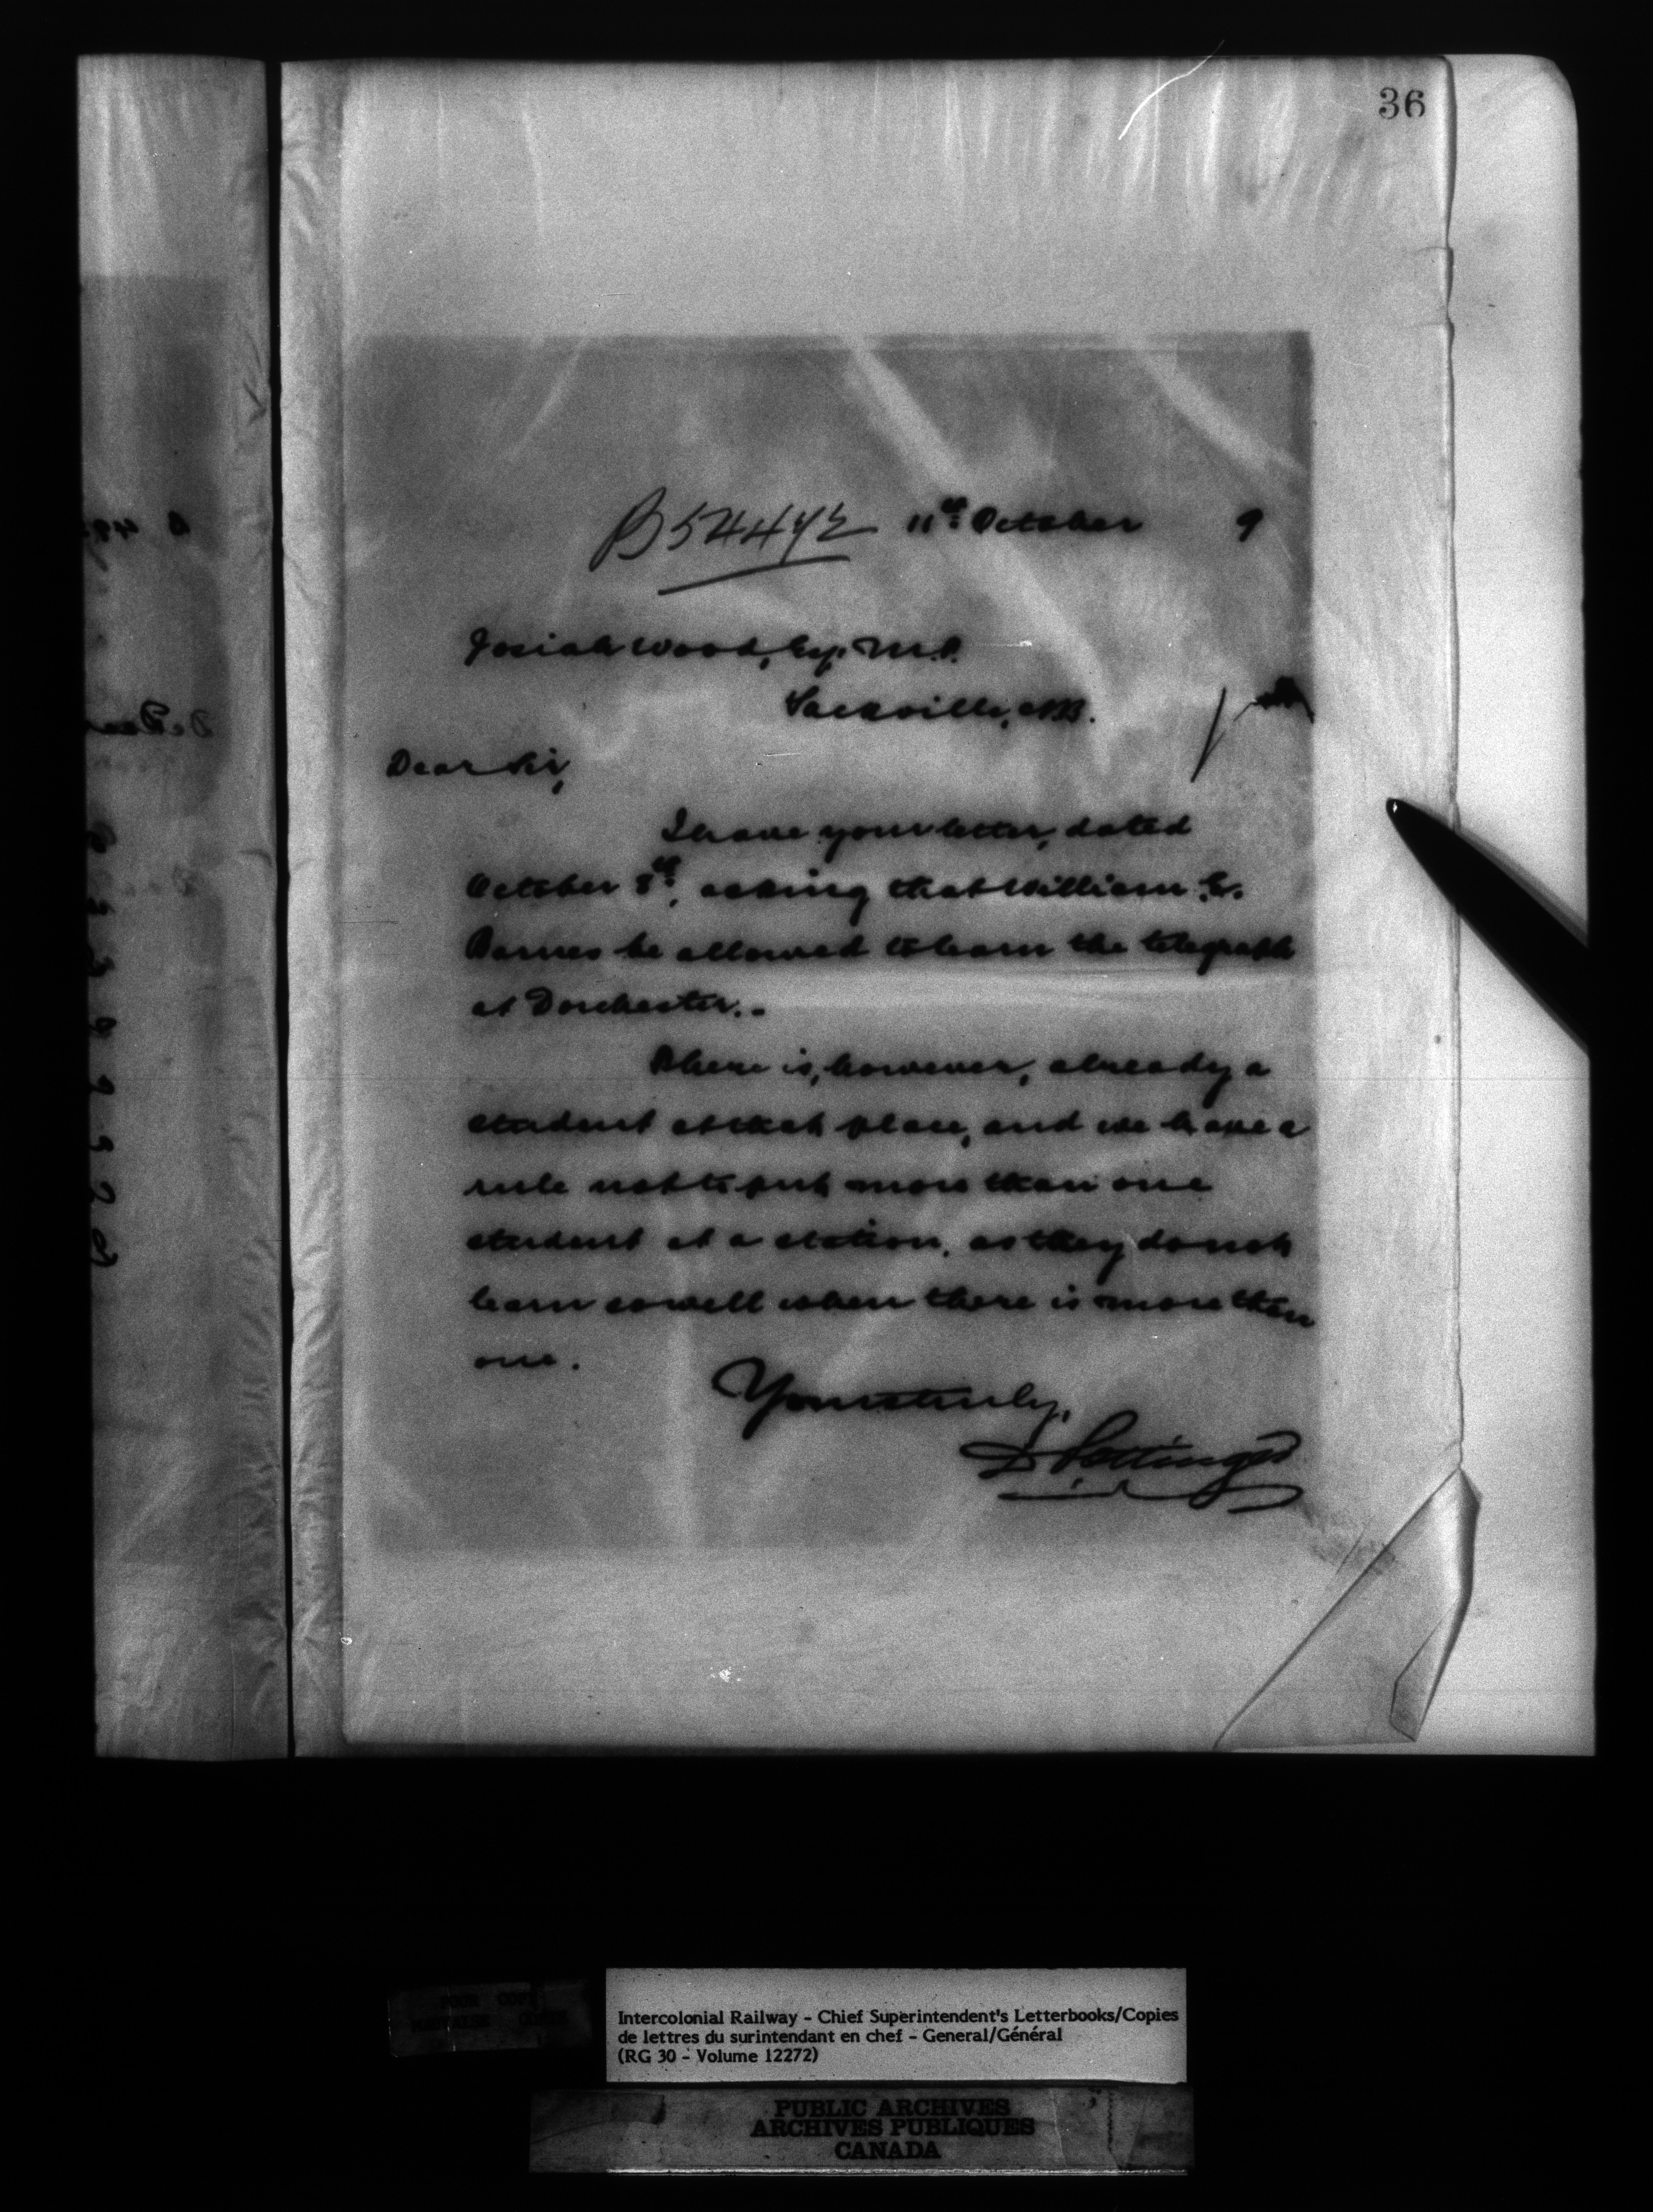 36
B54492 11th October 9
Josiah Wood, Esq. M.P.
Sackville, N.B.
Dear Sir,
I have your letter, dated
October 8th, asking that William E.
Barnes be allowed to learn the telegraph
at Dorchester.-
There is, however, already a
student at that place, and we have a
rule not to put more than one
student at a station, as they do not
learn so well when there is more than
one.
Yours truly,
D Pottinger
Intercolonial Railway - Chief Superintendent's Letterbooks/Copies
de lettres du surintendant en chef - General/Général
(RG 30 - Volume 12272)
PUBLIC ARCHIVES
ARCHIVES PUBLIQUES
CANADA